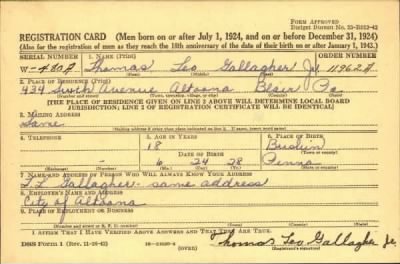 FORM APPROVED
Budget Bureau No. 33-R023-42
REGISTRATION CARD (Men born on or after July 1, 1924, and on or before December 31, 1924)
(Also for the registration of men as they reach the 18th anniversary of the date of their birth on or after January 1, 1943.)
SERIAL NUMBER 1. NAME (Print) ORDER NUMBER
W-480A Thomas Leo Gallagher Jr. 11962A
(First) (Middle) (Last)
2. PLACE OF RESIDENCE (Print)
434 Sixth Avenue Altoona Blair Pa
(Number and street) (Town, township, village, or city) (County) (State)
[THE PLACE OF RESIDENCE GIVEN ON LINE 2 ABOVE WILL DETERMINE LOCAL BOARD
JURISDICTION; LINE 2 OF REGISTRATION CERTIFICATE WILL BE IDENTICAL]
3. MAILING ADDRESS
Same
[Mailing address if other than place indicated on line 2. If same, insert word same]
4. TELEPHONE 5. AGE IN YEARS 6. PLACE OF BIRTH
18 
DATE OF BIRTH (Town or county)
- 6 24 28 Penna
(Exchange) (Number) (Mo.) (Day) (Yr.) (State or country)
7. NAME AND ADDRESS OF PERSON WHO WILL ALWAYS KNOW YOUR ADDRESS
T. L. Gallagher - same address
8. EMPLOYER'S NAME AND ADDRESS
City of Altoona
9. PLACE OF EMPLOYMENT OR BUSINESS
(Number and street or R. F. D. number) (Town) (County) (State)
I AFFIRM THAT I HAVE VERIFIED ABOVE ANSWERS AND THAT THEY ARE TRUE.
DSS Form 1 (OVER) Thomas Leo Gallagher Jr.